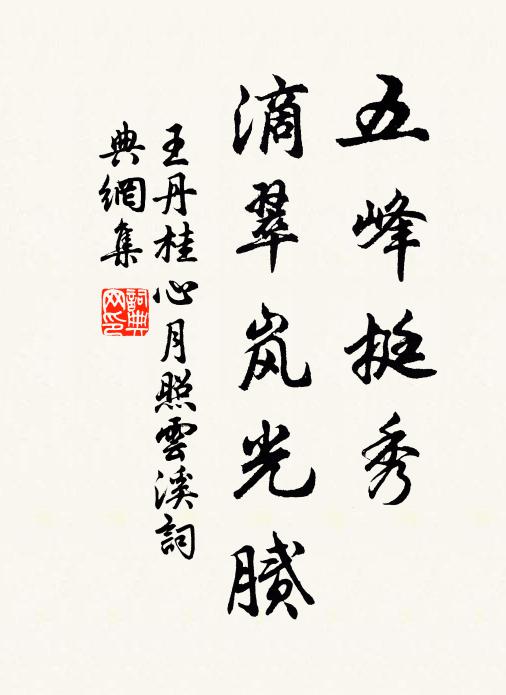 五峰挺秀
滴翠岚光腻
王丹桂心月照雲溪詞
典網集
詞典网印